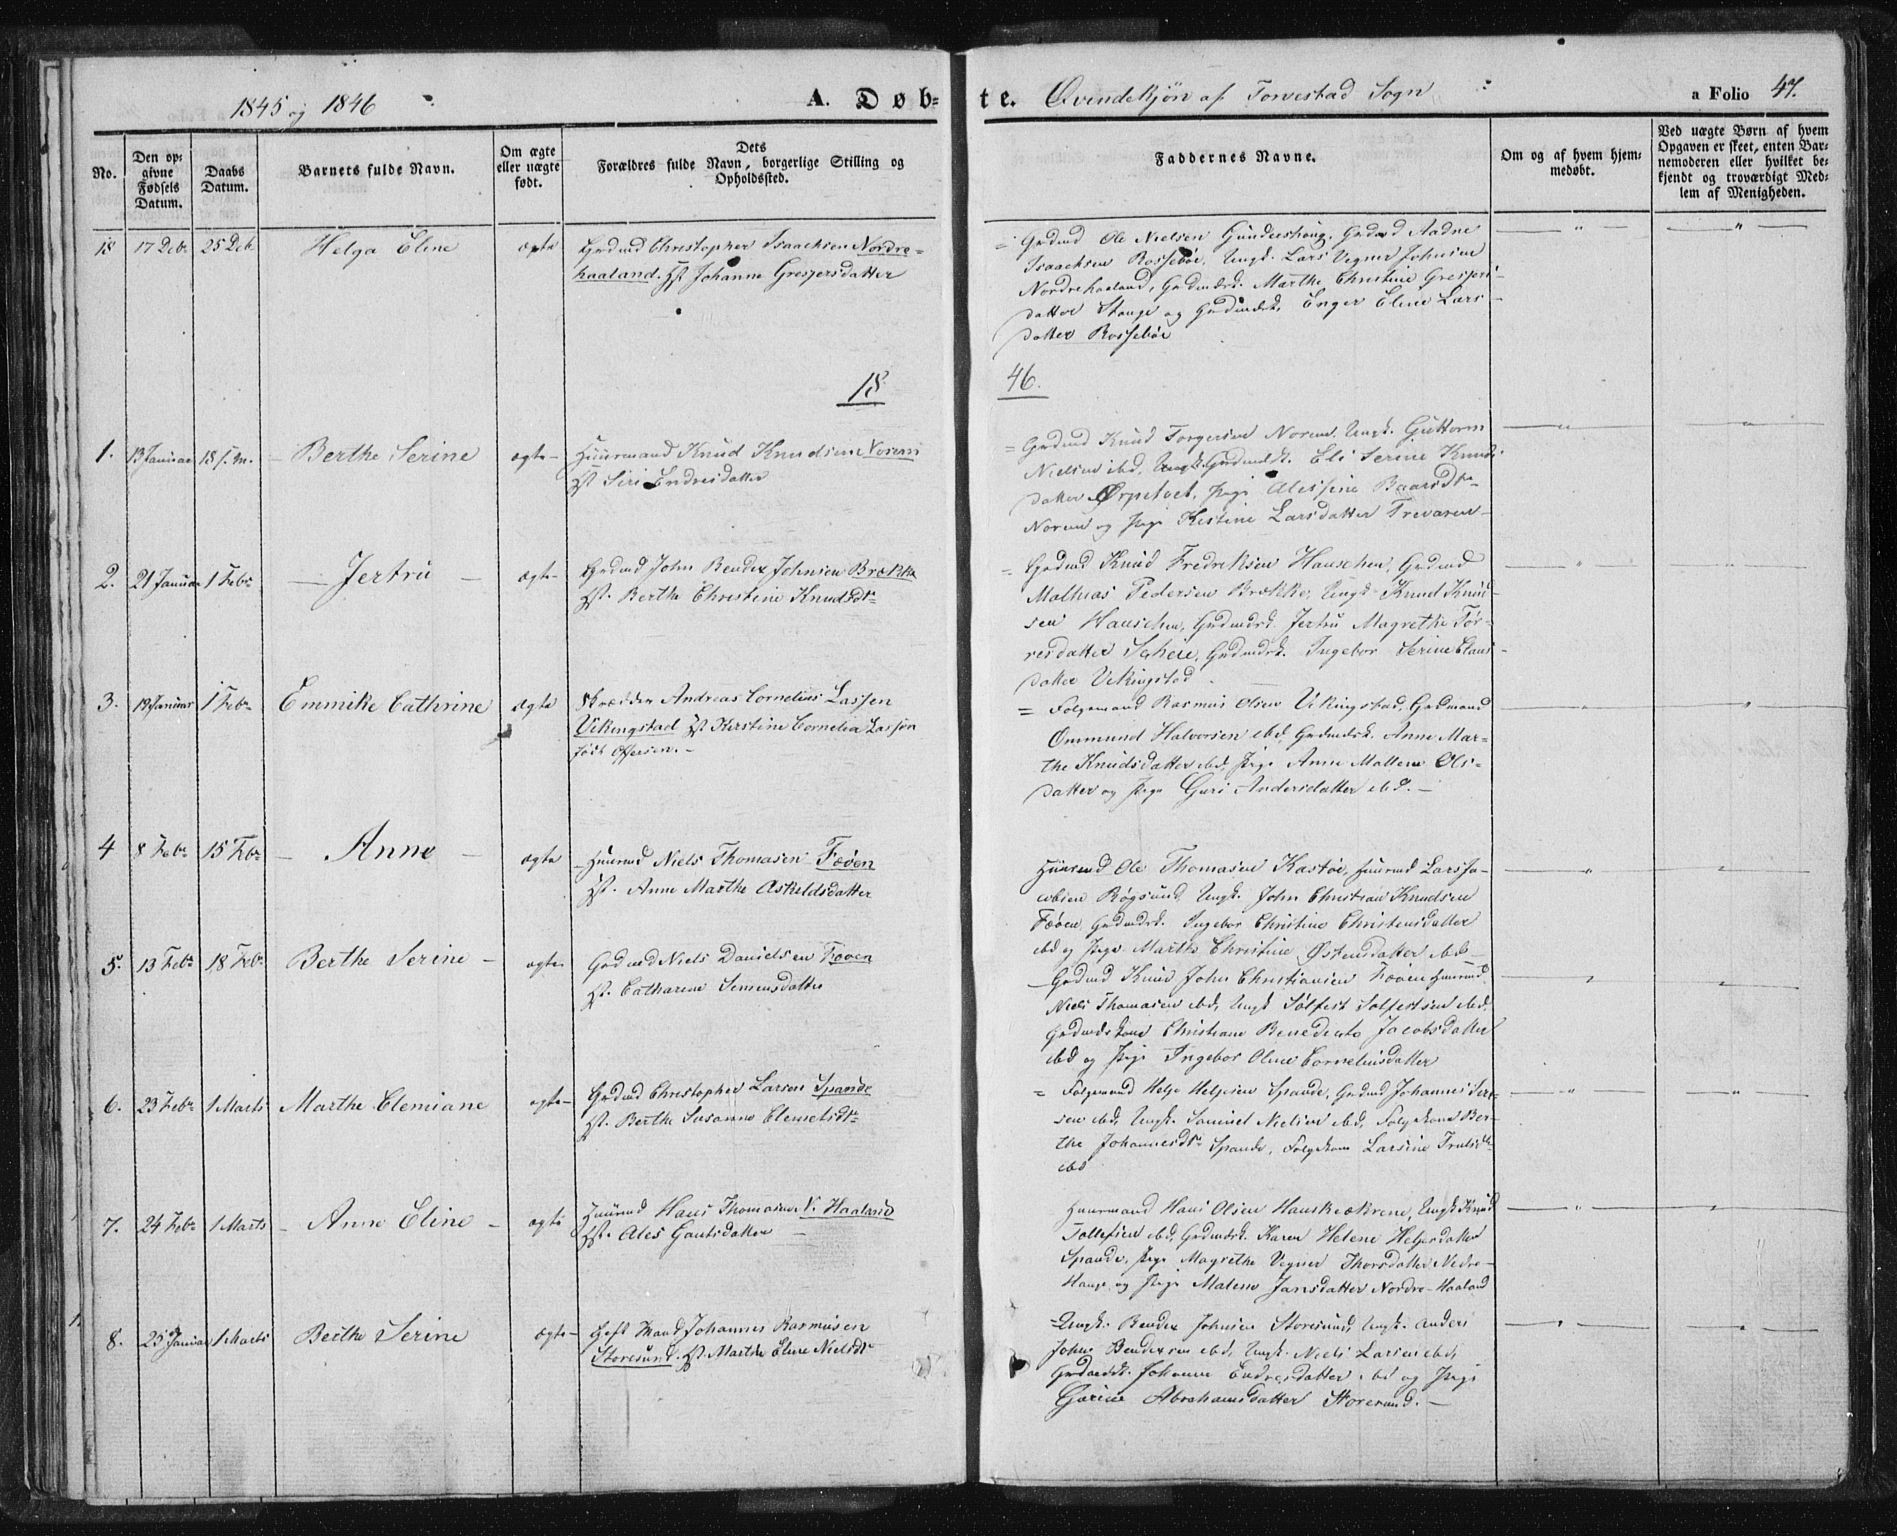 1845 og 1846
A. Døb-
te. Qvindekjøn af Torvestad Sogn
a Folio 47.
No.
Den op-
givne
Fødsels
Datum.
Daabs
Datum.
Barnets fulde Navn.
Om ægte
eller uægte
født.
Dets
Forældres fulde Navn, borgerlige Stilling og
Opholdssted.
Faddernes Navne.
Om og af hvem hjem-
medøbt.
Ved uægte Børn af hvem
Opgaven er skeet, enten Bar-
nemoderen eller hvilket be-
kjendt og troværdigt Med-
lem af Menigheden.
18 17 Debr 25 Deb Helga Eline ægte
Grdmd Christopher Isaachsen Nordre-
haaland. Hst Johanne Gresjersdatter
Grdmd Ole Nielsen Gunders Grdmd Aadne
Isaachsen Rossebøe, Ungk. Lars Vegner Johnsen
Nordrehaaland, Grdmdsk. Marthe Christine Gresjers-
datter Stange og Grdmdsk. Enger Eline Lars-
datter Rossebøe
18
46.
1. 13 Januar 18 s. m. Berthe Serine ægte
Huusmand Knud Knudsen Norem
Hst Siri Endresdatter
Grdmd Knud Torgersen Norem, Ungk. Guttorm
Nielsen ibd, Grdmdsk. Eli Serine Knuds-
datter Pige Baardsdtr
Norem og Pige Kestine Larsdatter
2. 21 Januar 1 Febr Jertru ægte
Grdmd John Bendix Johnsen Brække
Hst. Berthe Christine Knudsdtr
Grdmd Knud Fredriksen Hauschen, Grdmd
Mathias Pedersen Brække, Ungk. Knud Knud-
sen Hauschen, Grdmdsk. Jertru Magrethe Tør-
resdatter Grdmdsk. Ingebor Serine Claus-
datter Vikingstad
3. 19 Januar 1 Febr Emmike Cathrine ægte
Skrædder Andreas Cornelius Lassen
Vikingstad Hst Kirstine Cornelia Lassen
født
Folgemand Rasmus Olsen Vikingstad, Grdmand
Ommund Halvorsen ibd, Grdmdsk. Anne Mar-
the Knudsdatter ibd, Pige Anne Mallene Ols-
datter og Pige Guri Andersdatter ibd.
4 8 Febr 15 Febr Anne ægte
Huusmd Niels Thomasen Fæøen
Hst. Anne Marthe Askildsdatter
Huusmd Ole Thomasen Kastøe, Huusmd Lars Ja-
cobsen Røgsund, Ungk. John Christian Knudsen
Fæøen, Grdmdsk. Ingebor Christine Christensdatter
ibd og Pige Marthe Christine Østensdatter ibd
5. 13 Febr 18 Febr Berthe Serine ægte
Grdmd Niels Danielsen Fæøen
Hst. Catharine Simensdatter
Grdmd Knud John Christiansen Fæøen, Huusmd
Niels Thomasen ibd, Ungk Sølfest Sølfestsen ibd,
Grdmdskone Christiane Benedicte Jacobsdatter
ibd og Pige Ingebor Oline Cornelinsdatter
6. 23 Febr 1 Marts Marthe Clemiane ægte
Grdmd Christopher Larsen Spande
Hst. Berthe Susanne Clemetsdtr
Folgemand Helge Helgesen Spande, Grdmd Johannes
sen ibd, Ungk. Samuel Nielsen ibd, Folgekone Ber-
the Johannesdtr Spande, Folgekone Larsine
ibd
7. 24 Febr 1 Marts Anne Eline ægte
Huusmd Hans Thomasen N. Haaland
Hst. Ales Gautsdatter
Huusmand Hans Olsen Ungk. Knud
Tollefsen ibd, Grdmdsk. Karen Helene Helgesdatter
Spande, Pige Magrethe Vegner Thorsdatter Nedre-
Hauge og Pige Malene Jansdatter Nordre-Haaland
8. 25 Januar 1 Marts Berthe Serine ægte
Gift Mand Johannes Rasmusen
Storesund. Hst Marthe Eline Nielsdtr
Ungk. Bendix Johnsen Storesund, Ungk. Anders
John Bendixsen ibd, Ungk. Niels Larsen ibd,
Grdmdsk. Johanne Endresdatter ibd og Pige
Gurine Abrahamsdatter Storesund.